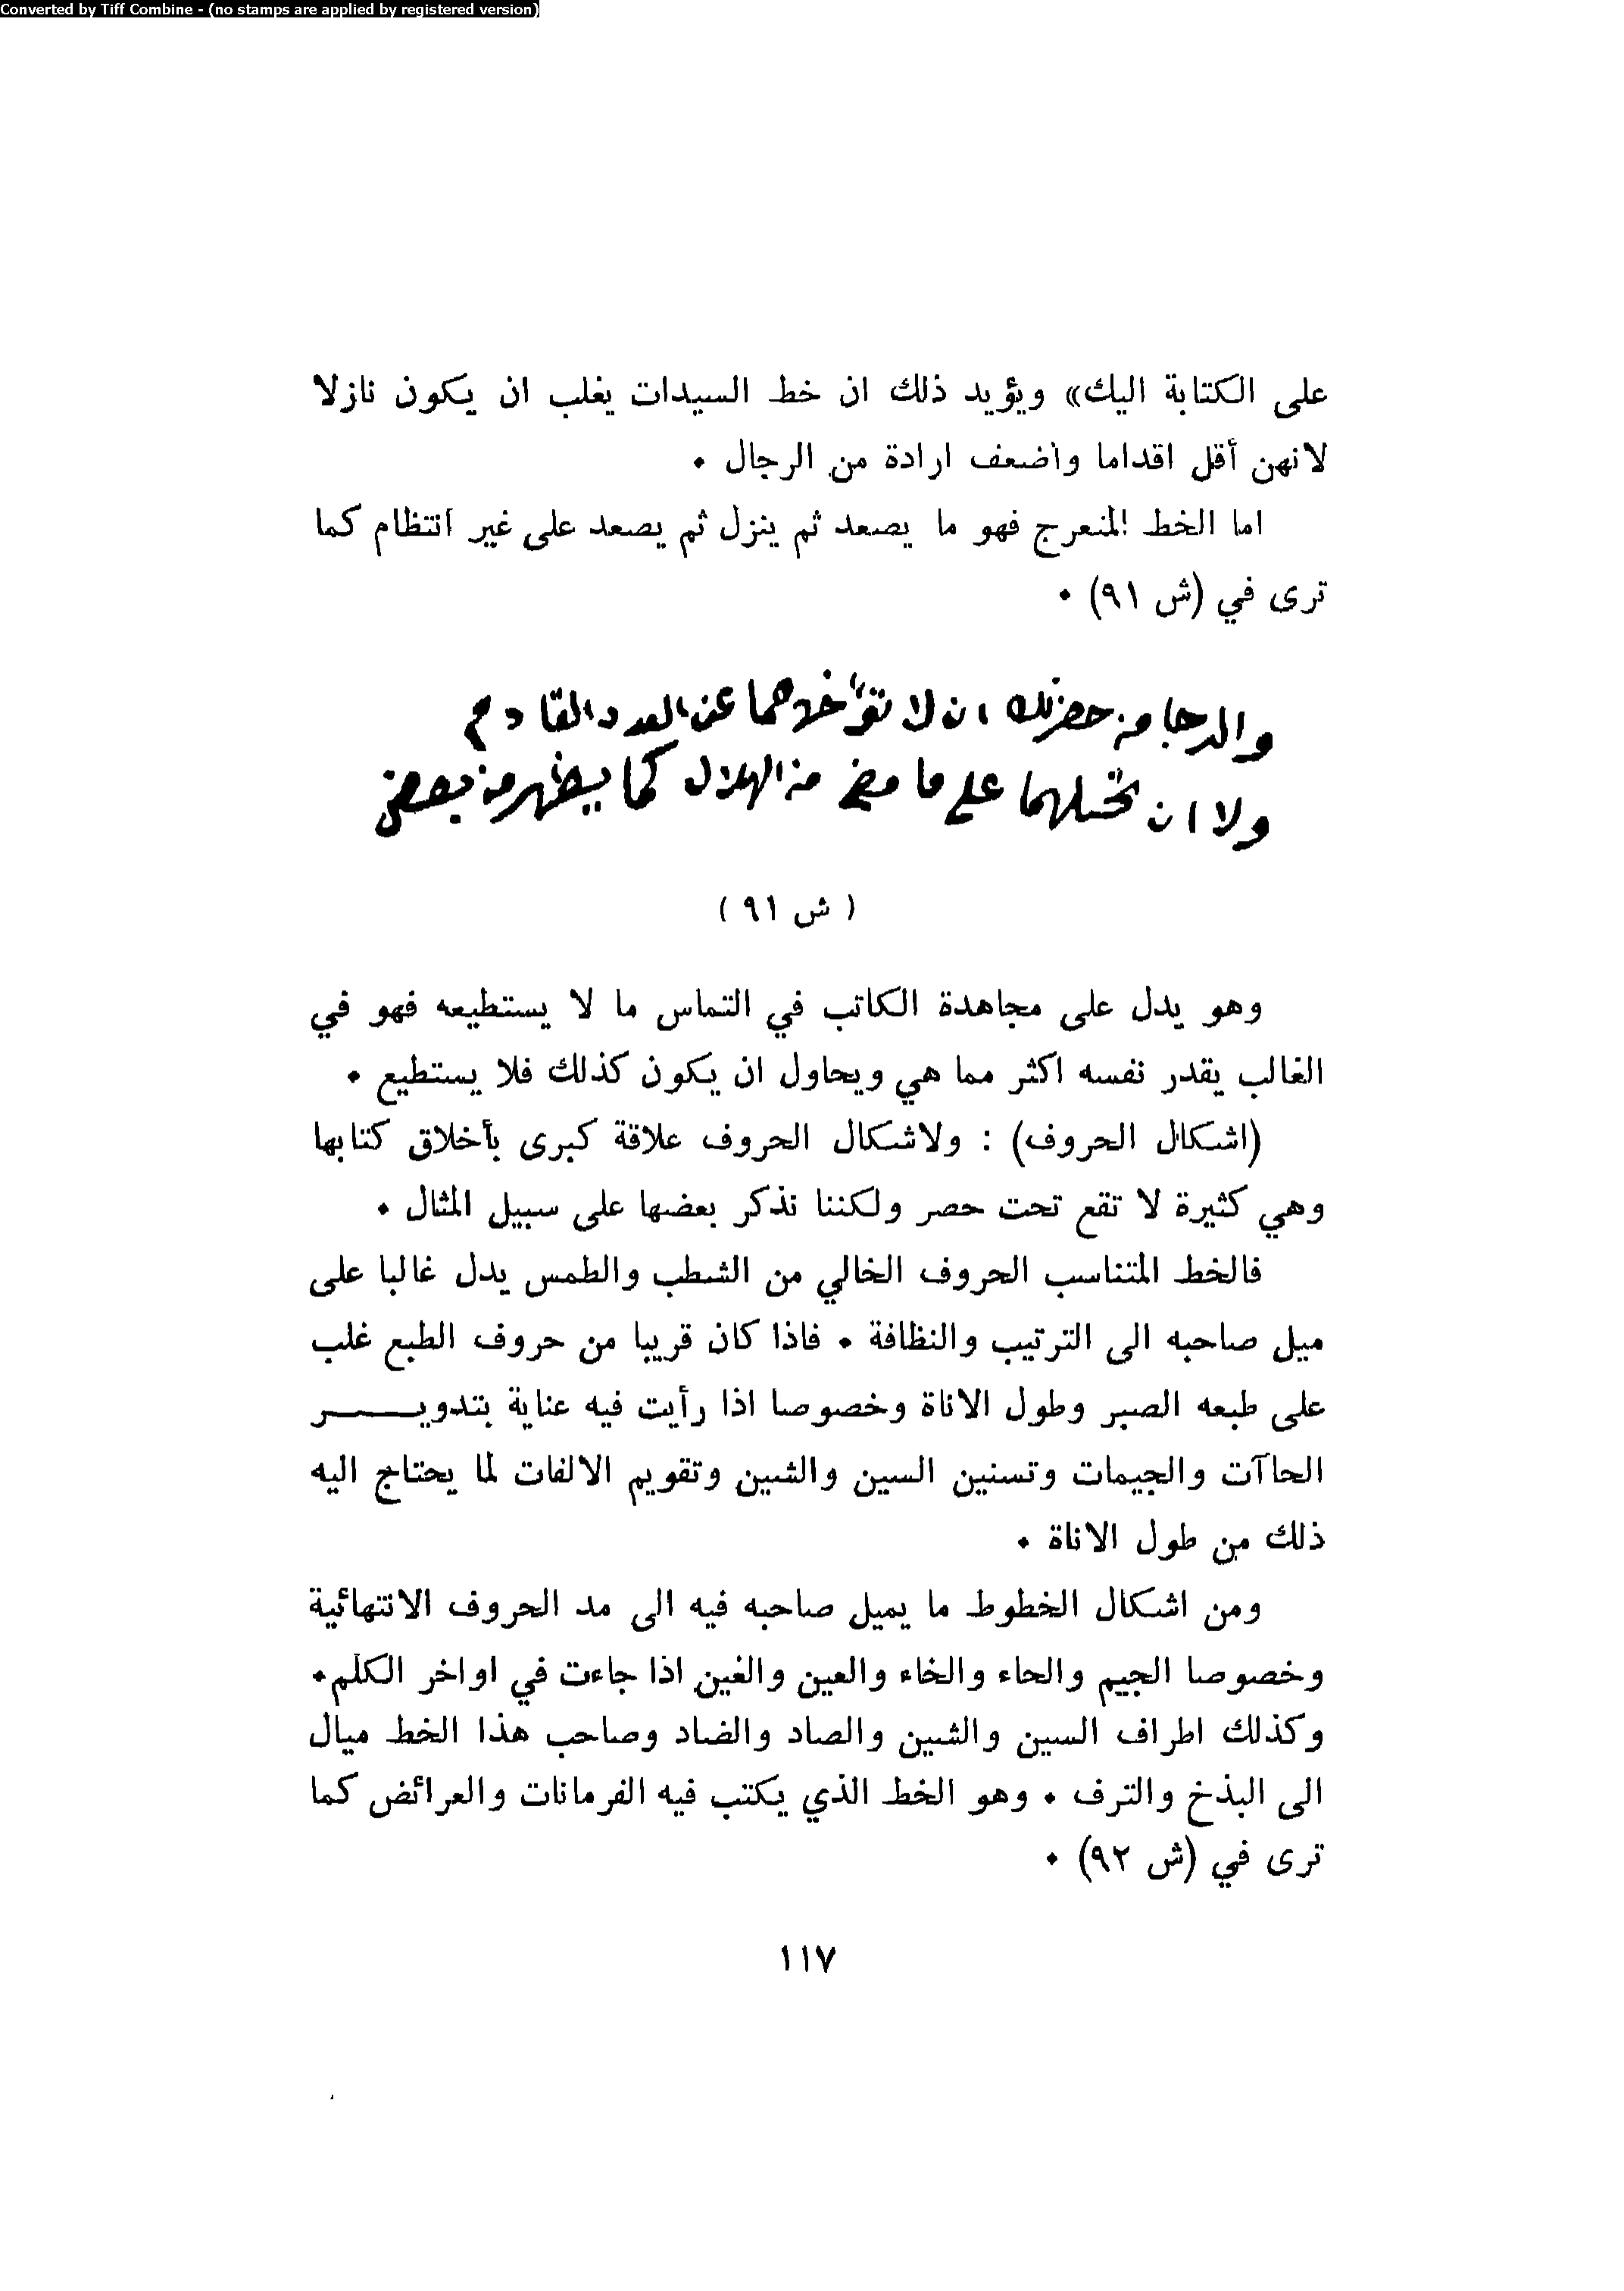 Converted by Tiff Combine - (no stamps are applied by registered version)
على الكتابة اليك» ويؤيد ذلك ان خط السيدات يغلب ان يكون نازلا
لانهن أقل اقداما واضعف ارادة من الرجال •
اما الخط المنعرج فهو ما يصعد ثم ينزل ثم يصعد على غير انتظام كما
ترى في (ش ٩١) •
والرجا من حضرتك ان لا تؤخرهما عن العدد القادم
ولا ان على ما مضى من الهلال كما يظهر من بعض
( ش ٩١ )
وهو يدل على مجاهدة الكاتب في التماس ما لا يستطيعه فهو في
الغالب يقدر نفسه اكثر مما هي ويحاول ان يكون كذلك فلا يستطيع •
(اشكال الحروف) : ولاشكال الحروف علاقة كبرى بأخلاق كتابها
وهي كثيرة لا تقع تحت حصر ولكننا نذكر بعضها على سبيل المثال •
فالخط المتناسب الحروف الخالي من الشطب والطمس يدل غالبا على
ميل صاحبه الى الترتيب والنظافة • فاذا كان قريبا من حروف الطبع غلب
على طبعه الصبر وطول الاناة وخصوصا اذا رأيت فيه عناية بتدويـــــر
الحاآت والجيمات وتسنين السين والشين وتقويم الالفات لما يحتاج اليه
ذلك من طول الاناة •
ومن اشكال الخطوط ما يميل صاحبه فيه الى مد الحروف الانتهائية
وخصوصا الجيم والحاء والخاء والعين والغين اذا جاءت في اواخر الكلم•
وكذلك اطراف السين والشين والصاد والضاد وصاحب هذا الخط ميال
الى البذخ والترف • وهو الخط الذي يكتب فيه الفرمانات والعرائض كما
ترى في (ش ٩٢) •
١١٧